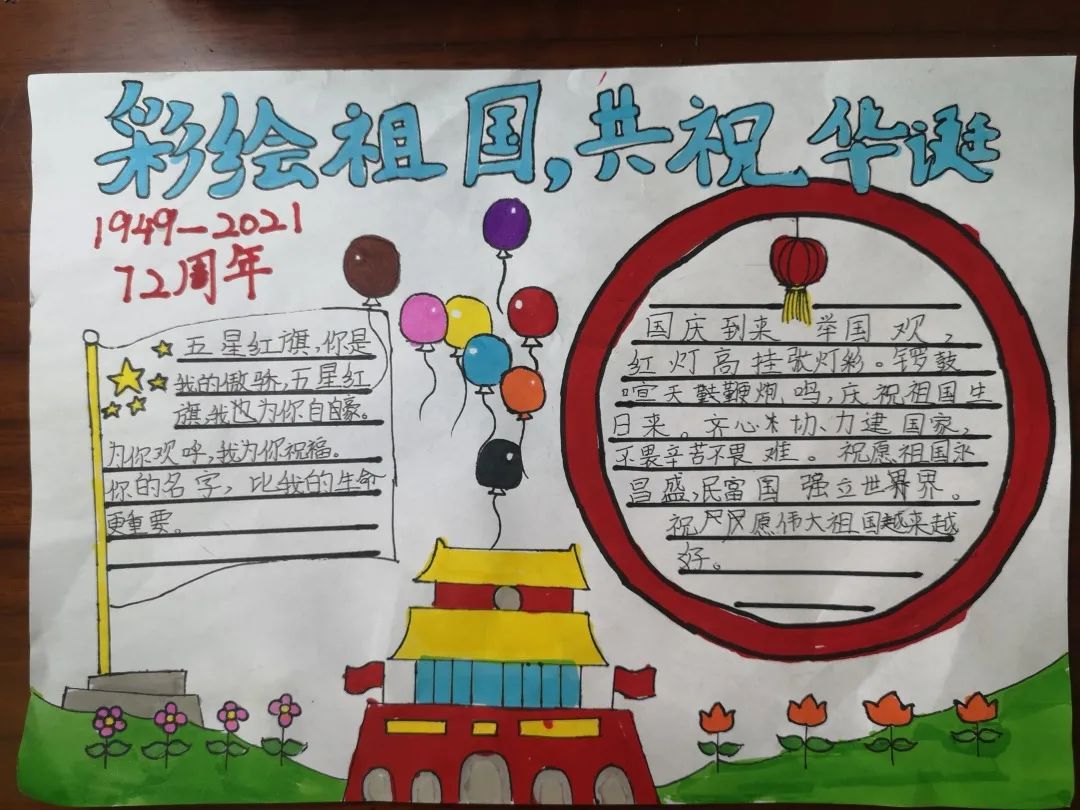 彩绘祖国,共祝华诞
1949-2021
72周年
五星红旗,你是
我的傲骄,五星红
旗,我也为你自豪。
为你欢呼,我为你祝福。
你的名字,比我的生命
更重要。
国庆到来 举国欢,
红灯高挂张灯彩。锣鼓
喧天鼓鞭炮鸣,庆祝祖国生
日来。齐心协力建国家,
不畏辛苦不畏难。祝愿祖国永
昌盛,民富国强立世界。
祝愿伟大祖国越来越
好。